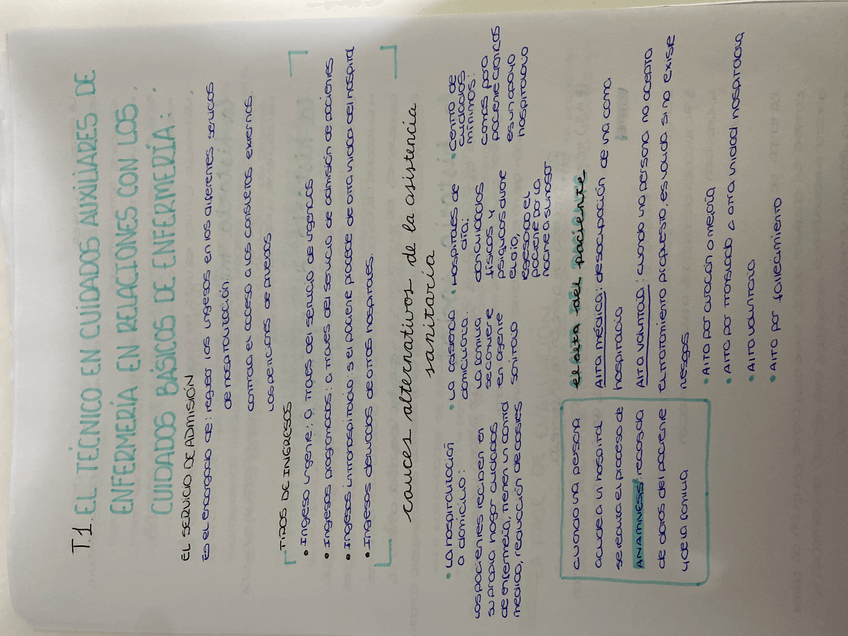 T.1. EL TÉCNICO EN CUIDADOS AUXILIARES DE
ENFERMERÍA EN RELACIONES CON LOS
CUIDADOS BÁSICOS DE ENFERMERÍA:
EL SERVICIO DE ADMISIÓN
Es el encargado de: regular los ingresos en los diferentes servicios
de hospitalización.
controla el acceso a las consultas externas.
las peticiones de pruebas
TIPOS DE INGRESOS
• Ingreso urgente: a través del servicio de urgencias
• Ingresos programados: a través del servicio de admisión de pacientes
• Ingresos intrahospitalario: si el paciente procede de otra unidad del hospital
• Ingresos derivados de otros hospitales.
cauces alternativos de la asistencia
sanitaria
• La hospitalización
a domicilio:
Los pacientes reciben en
su propio hogar cuidados
de enfermería, tienen un control
médico, reducción de costes
• La asistencia
domiciliaria:
La familia
se convierte
en agente
sanitario
• Hospitales de
día:
dan cuidados
físicos y
psíquicos durante
el día,
regresando el
paciente por la
noche a su hogar
• Centro de
cuidados
mínimos:
camas para
paciente crónicos
es un apoyo
hospitalario
cuando una persona
acude a un hospital
se realiza el proceso de
ANAMNESIS: recogida
de datos del paciente
y de la familia
el alta del paciente
Alta médica: desocupación de una cama
hospitalaria
Alta voluntad: cuando una persona no acepta
el tratamiento propuesto, es valida si no existe
riesgos
• Alta por curación o mejoría
• Alta por traslado a otra unidad hospitalaria
• Alta voluntaria
• Alta por fallecimiento